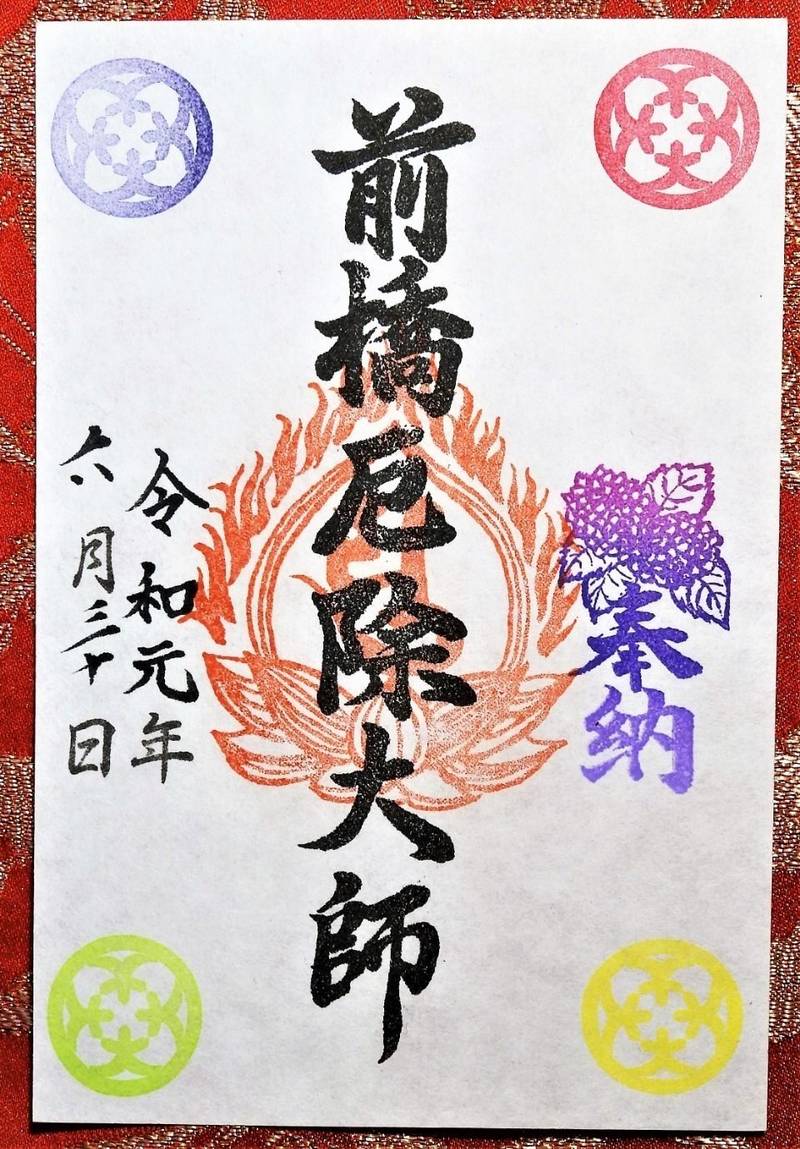 奉納
前橋厄除大師
令和元年
六月三十日